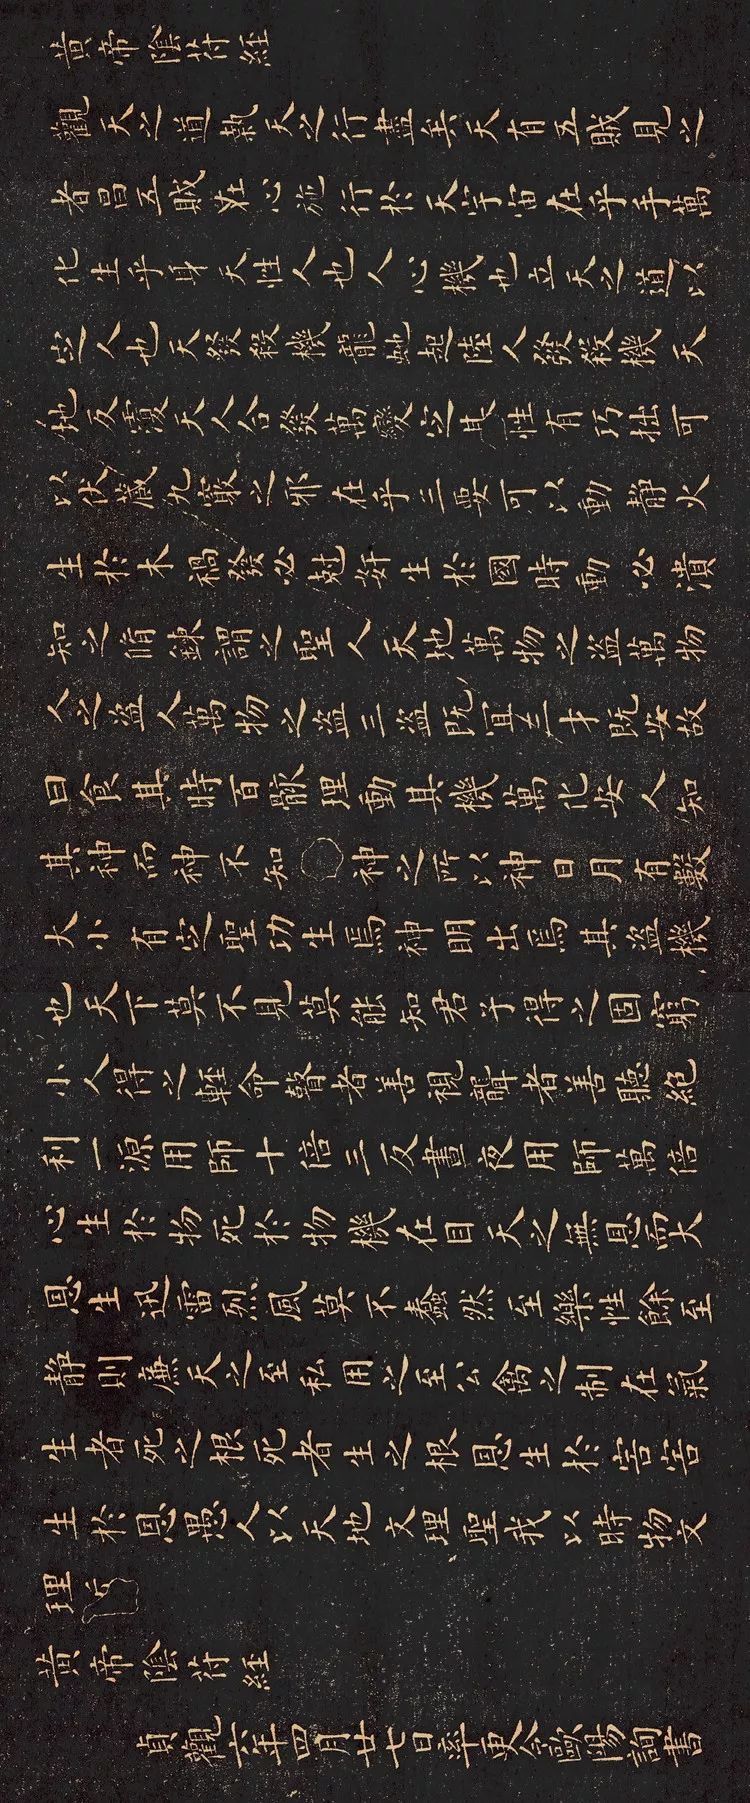 黄帝陰符経
觀天之道執天之行盡矣天有五賊見之
者昌五賊在心施行於天宇宙在乎手萬
化生乎身天性人也人心機也立天之道以
定人也天發殺機龍虵起陸人發殺機天
地反覆天人合發萬變定基性有巧拙可
以伏藏九竅之邪在乎三要可以動靜火
生於木禍發必尅奸生於國時動必潰
知之脩鍊謂之聖人天地萬物之盗萬物
人之盗人萬物之盗三盗既宜三才既安故
曰食其時百骸理動其機萬化安人知
其神而神不知神之所以神日月有數
大小有定聖功生焉神明出焉其盗機
也天下莫不見莫能知君子得之固窮
小人得之輕命瞽者善視聾者善聽絕
利一源用師十倍三反晝夜用師萬倍
心生於物死於物機在目天之無恩而大
恩生迅雷烈風莫不蠢然至樂性餘至
靜則廉天之至私用之至公禽之制在氣
生者死之根死者生之根恩生於害害
生於恩愚人以天地文理聖我以時物文
理
黄帝陰符経
貞觀六年四月廿七日率更令歐陽詢書